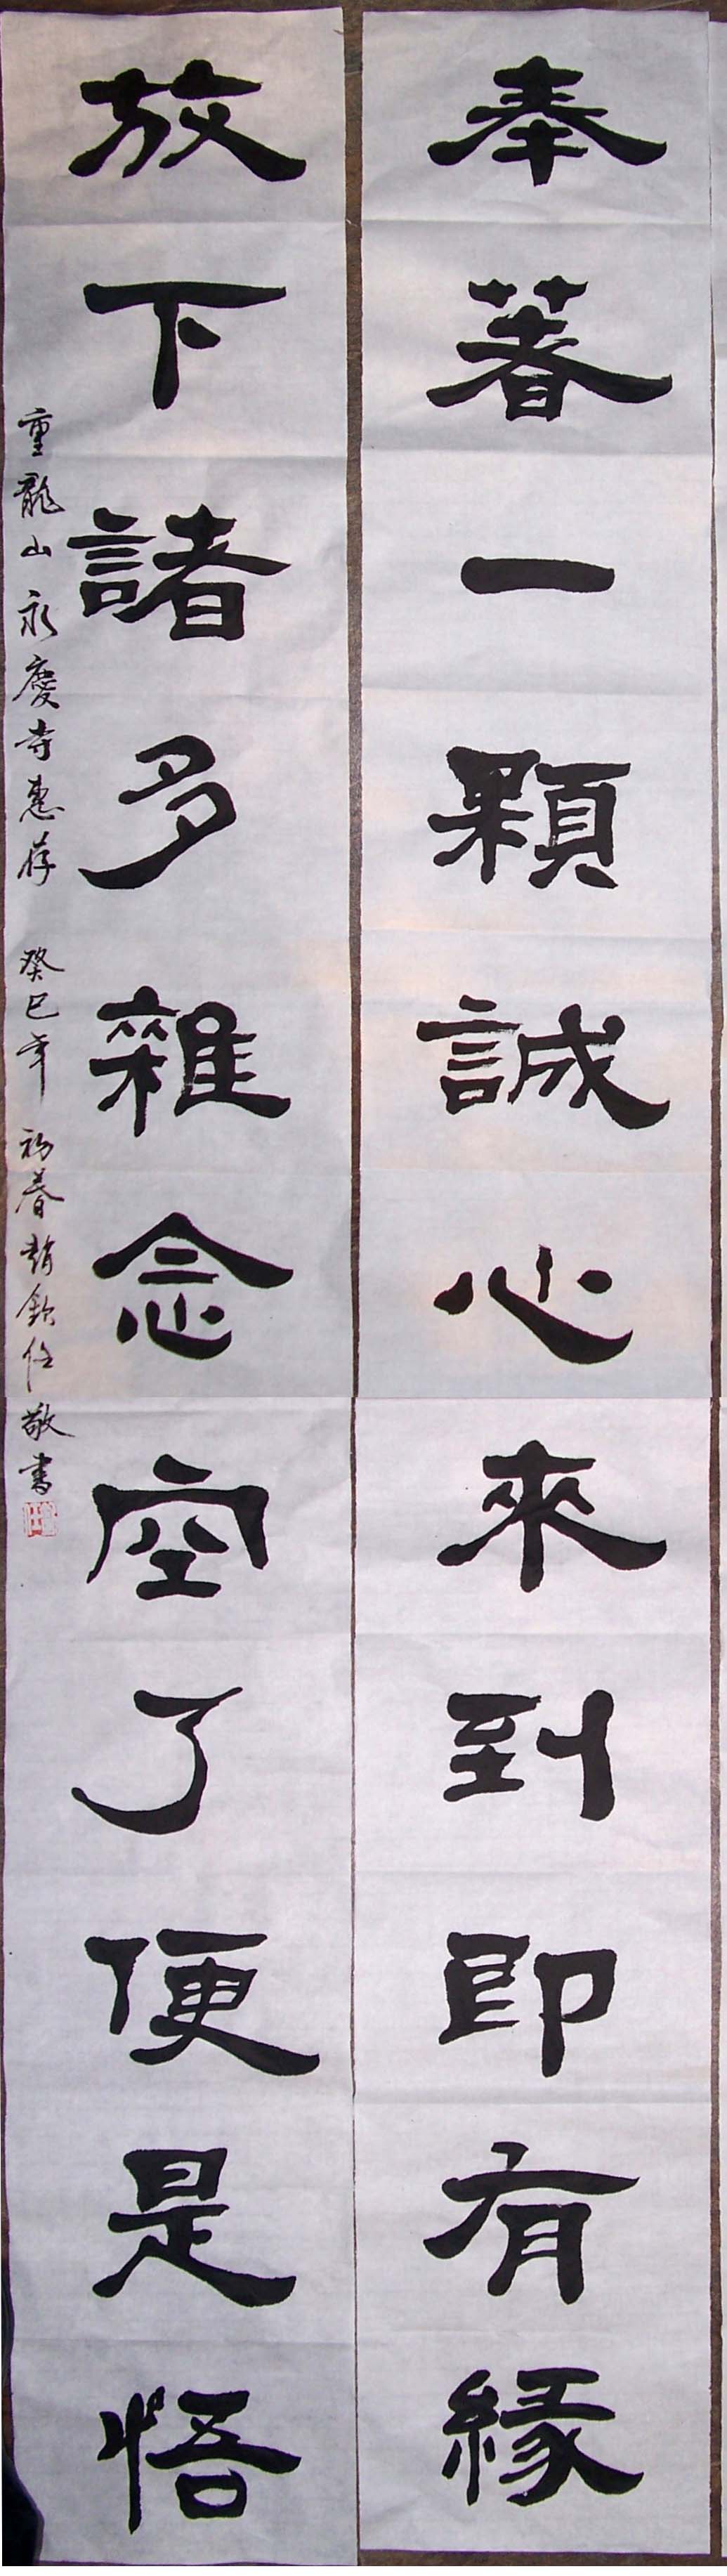 奉着一顆誠心來到即有緣
放下諸多雜念空了便是悟
重龍山永慶寺惠存 癸巳年初春趙欽任敬書